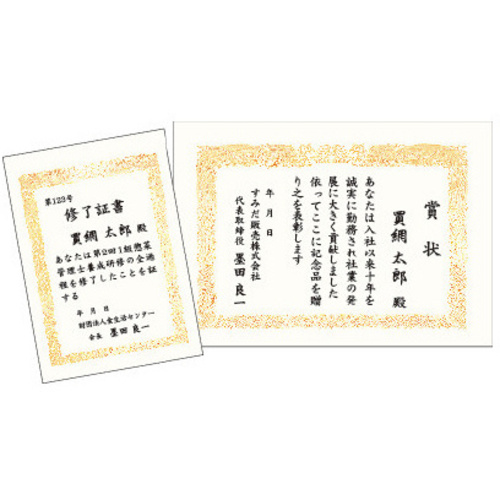 第123号
修了証書
賈綱 太郎 殿
あなたは第2回1級惣菜
管理士養成研修の全過
程を修了したことを証
する
年 月 日
財団法人食生活センター
会長 墨田 良一
賞状
賈綱 太郎 殿
あなたは入社以来十年を
誠実に勤務され社業の発
展に大きく貢献しました
依ってここに記念品を贈
り之を表彰します
年 月 日
すみだ販売株式会社
代表取締役 墨田 良一